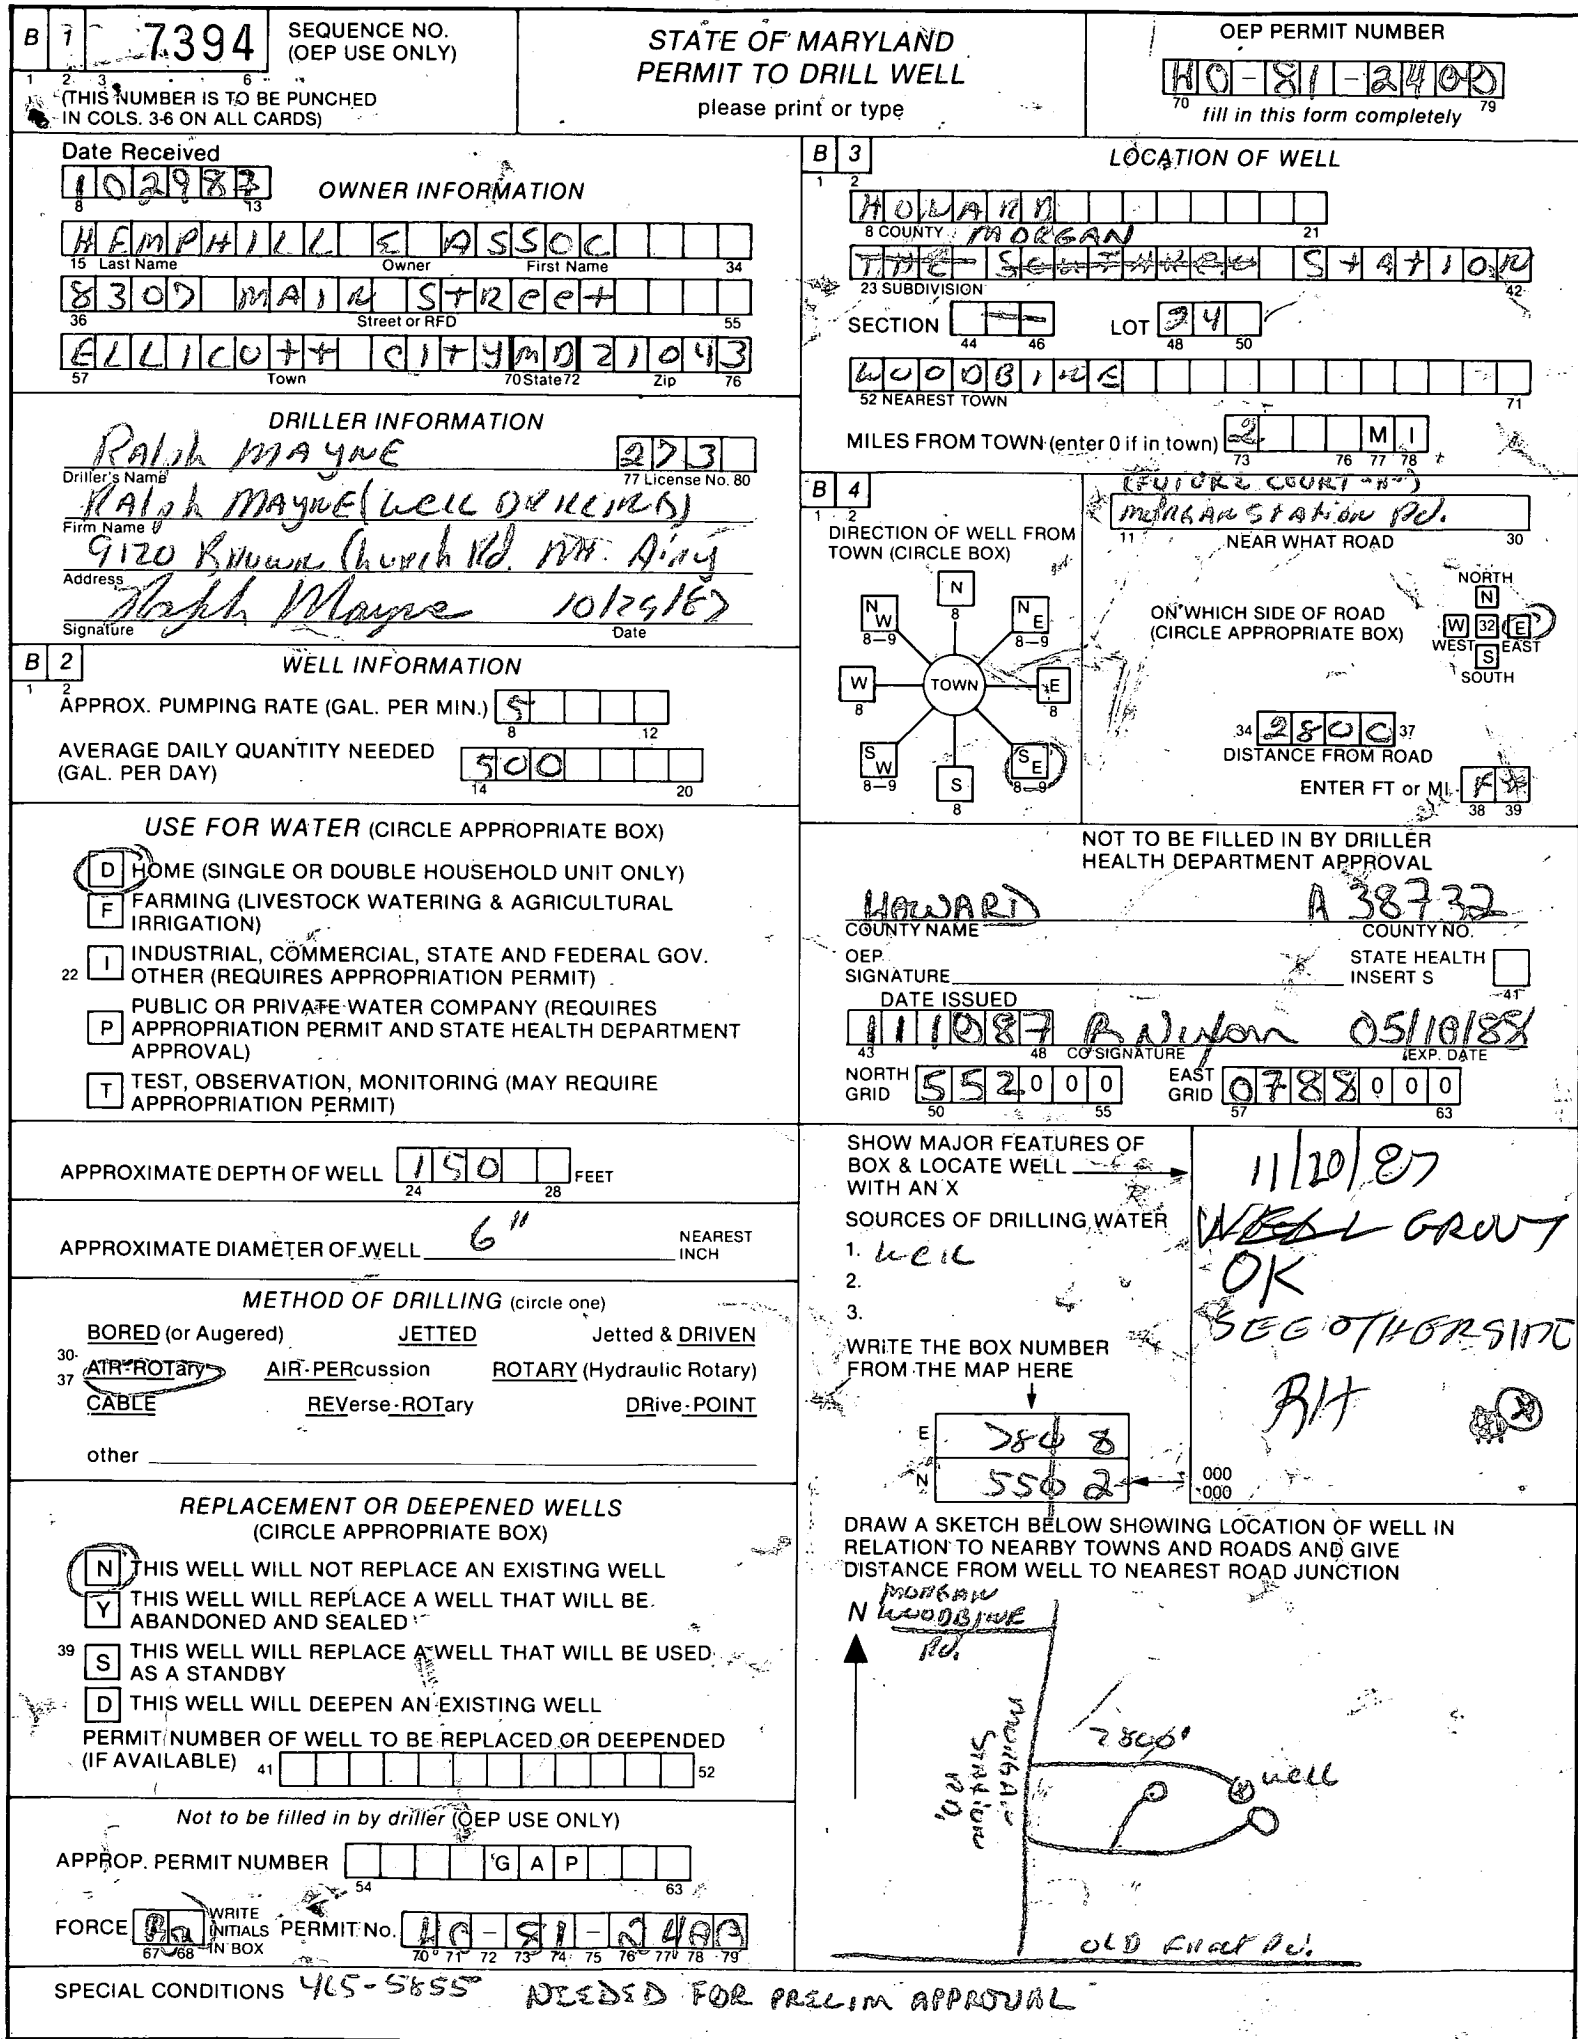 B 1 7394 SEQUENCE NO.
(OEP USE ONLY)
1 2 3 6
(THIS NUMBER IS TO BE PUNCHED
IN COLS. 3-6 ON ALL CARDS)
STATE OF MARYLAND
PERMIT TO DRILL WELL
please print or type
OEP PERMIT NUMBER
HO-81-2400
70 79
fill in this form completely
Date Received
102987
8 13
OWNER INFORMATION
HEMPHILL & ASSOC
15 Last Name Owner First Name 34
8307 MAIN STREET
36 Street or RFD 55
ELLICOTT CITY MD 21043
57 Town 70 State 72 Zip 76
DRILLER INFORMATION
Ralph MAYNE 273
Driller's Name 77 License No. 80
RALPH MAYNE (WELL DRILLING)
Firm Name
9120 Brown Church Rd. Mt. Airy
Address
Ralph Mayne 10/29/87
Signature Date
B 2 WELL INFORMATION
1 2
APPROX. PUMPING RATE (GAL. PER MIN.) 5
8 12
AVERAGE DAILY QUANTITY NEEDED
(GAL. PER DAY) 500
14 20
USE FOR WATER (CIRCLE APPROPRIATE BOX)
D HOME (SINGLE OR DOUBLE HOUSEHOLD UNIT ONLY)
F FARMING (LIVESTOCK WATERING & AGRICULTURAL
IRRIGATION)
22 I INDUSTRIAL, COMMERCIAL, STATE AND FEDERAL GOV.
OTHER (REQUIRES APPROPRIATION PERMIT)
P PUBLIC OR PRIVATE WATER COMPANY (REQUIRES
APPROPRIATION PERMIT AND STATE HEALTH DEPARTMENT
APPROVAL)
T TEST, OBSERVATION, MONITORING (MAY REQUIRE
APPROPRIATION PERMIT)
APPROXIMATE DEPTH OF WELL 150 FEET
24 28
APPROXIMATE DIAMETER OF WELL 6" NEAREST
INCH
METHOD OF DRILLING (circle one)
BORED (or Augered) JETTED Jetted & DRIVEN
30-
37 AIR-ROTary AIR-PERcussion ROTARY (Hydraulic Rotary)
CABLE REVerse-ROTary DRive-POINT
other
REPLACEMENT OR DEEPENED WELLS
(CIRCLE APPROPRIATE BOX)
N THIS WELL WILL NOT REPLACE AN EXISTING WELL
Y THIS WELL WILL REPLACE A WELL THAT WILL BE
ABANDONED AND SEALED
39 S THIS WELL WILL REPLACE A WELL THAT WILL BE USED
AS A STANDBY
D THIS WELL WILL DEEPEN AN EXISTING WELL
PERMIT NUMBER OF WELL TO BE REPLACED OR DEEPENDED
(IF AVAILABLE) 41 52
Not to be filled in by driller (OEP USE ONLY)
APPROP. PERMIT NUMBER G A P
54 63
FORCE WRITE INITIALS IN BOX PERMIT No. HO-81-2400
67 68 70 71 72 73 74 75 76 77 78 79
B 3 LOCATION OF WELL
1 2
HOWARD
8 COUNTY 21
MORGAN
STATION
23 SUBDIVISION 42
SECTION LOT 24
44 46 48 50
WOODBINE
52 NEAREST TOWN 71
MILES FROM TOWN (enter 0 if in town) 2 M I
73 76 77 78
B 4
1 2
DIRECTION OF WELL FROM
TOWN (CIRCLE BOX)
N
8
NW NE
8-9 8-9
W TOWN E
8 8
SW SE
8-9 8-9
S
8
(FUTURE COURT "A")
MORGAN STATION Rd.
11 NEAR WHAT ROAD 30
ON WHICH SIDE OF ROAD
(CIRCLE APPROPRIATE BOX)
NORTH
N
W 32 E
WEST EAST
S
SOUTH
34 2800 37
DISTANCE FROM ROAD
ENTER FT or MI FT
38 39
NOT TO BE FILLED IN BY DRILLER
HEALTH DEPARTMENT APPROVAL
HOWARD A 38732
COUNTY NAME COUNTY NO.
OEP
SIGNATURE
STATE HEALTH
INSERT S
41
DATE ISSUED
111087 R Nixon 05/10/88
43 48 CO SIGNATURE EXP. DATE
NORTH GRID 552000 EAST GRID 0788000
50 55 57 63
SHOW MAJOR FEATURES OF
BOX & LOCATE WELL
WITH AN X
SOURCES OF DRILLING WATER
1. well
2.
3.
WRITE THE BOX NUMBER
FROM THE MAP HERE
E 780 8
N 550 2
000
000
11/20/87
WELL GROUT
OK
SEE OTHER SIDE
RH
DRAW A SKETCH BELOW SHOWING LOCATION OF WELL IN
RELATION TO NEARBY TOWNS AND ROADS AND GIVE
DISTANCE FROM WELL TO NEAREST ROAD JUNCTION
N
MORGAN
WOODBINE
Rd.
MORGAN
STATION
RD.
2800'
well
OLD Frederick Rd.
SPECIAL CONDITIONS 465-5855 NEEDED FOR PRELIM APPROVAL